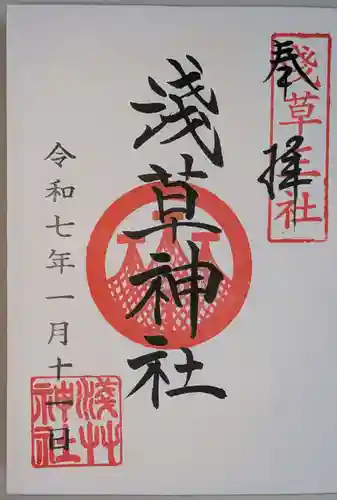 奉拝
淺草三社
淺草神社
令和七年一月十一日
淺草
神社